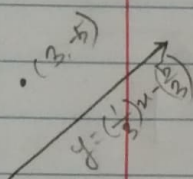 (3,-5)
y=(1/3)x-(2/3)